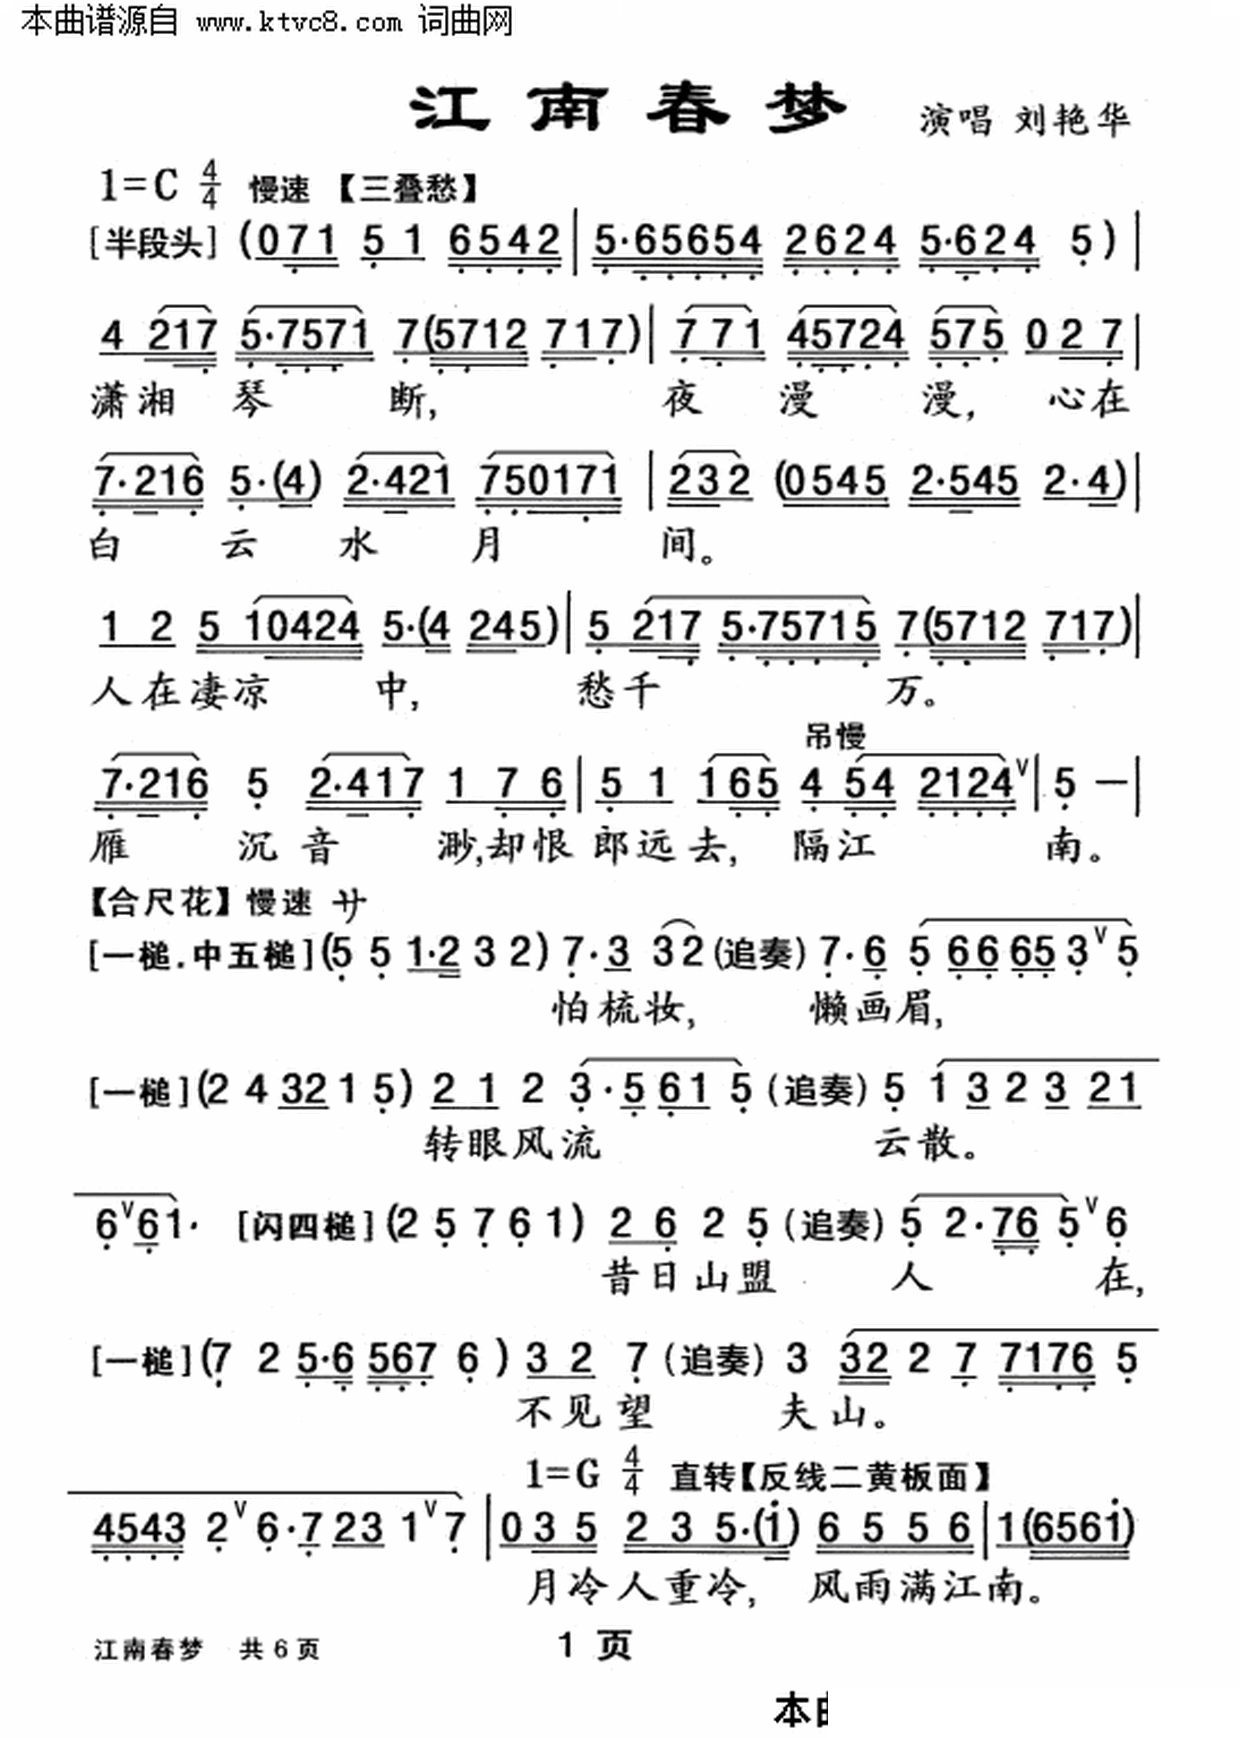 本曲谱源自 www.ktvc8.com 词曲网
江南春梦 演唱 刘艳华
1=C 4/4 慢速 【三叠愁】
[半段头] (071 51 6542 | 5·65654 2624 5·624 5) |
4 217 5·7571 7(5712 717) | 771 45724 575 027 |
潇湘 琴 断, 夜 漫 漫, 心在
7·216 5·(4) 2·421 750171 | 232 (0545 2·545 2·4) |
白 云 水 月 间。
1 2 5 10424 5·(4 245) | 5 217 5·75715 7(5712 717) |
人在凄凉 中, 愁千 万。
吊慢
7·216 5 2·417 1 7 6 | 5 1 165 4 54 2124ˇ | 5 — |
雁 沉 音 渺,却恨 郎远去, 隔江 南。
【合尺花】慢速 サ
[一槌.中五槌] (5 5 1·2 3 2) 7·3 32 (追奏) 7·6 5 66 65 3ˇ5
怕梳妆, 懒画眉,
[一槌] (2 4 32 1 5) 2 1 2 3·5 61 5 (追奏) 5 1 3 2 3 21
转眼风流 云散。
6ˇ61· [闪四槌] (2 5 7 6 1) 2 6 2 5 (追奏) 5 2·76 5ˇ6
昔日山盟 人 在,
[一槌] (7 2 5·6 567 6) 3 2 7 (追奏) 3 32 2 7 7176 5
不见望 夫山。
1=G 4/4 直转【反线二黄板面】
4543 2ˇ6·7 23 1ˇ7 | 035 2 3 5·(i) 6 5 5 6 | 1(656i)
月冷人重冷, 风雨满江南。
江南春梦 共6页 1 页